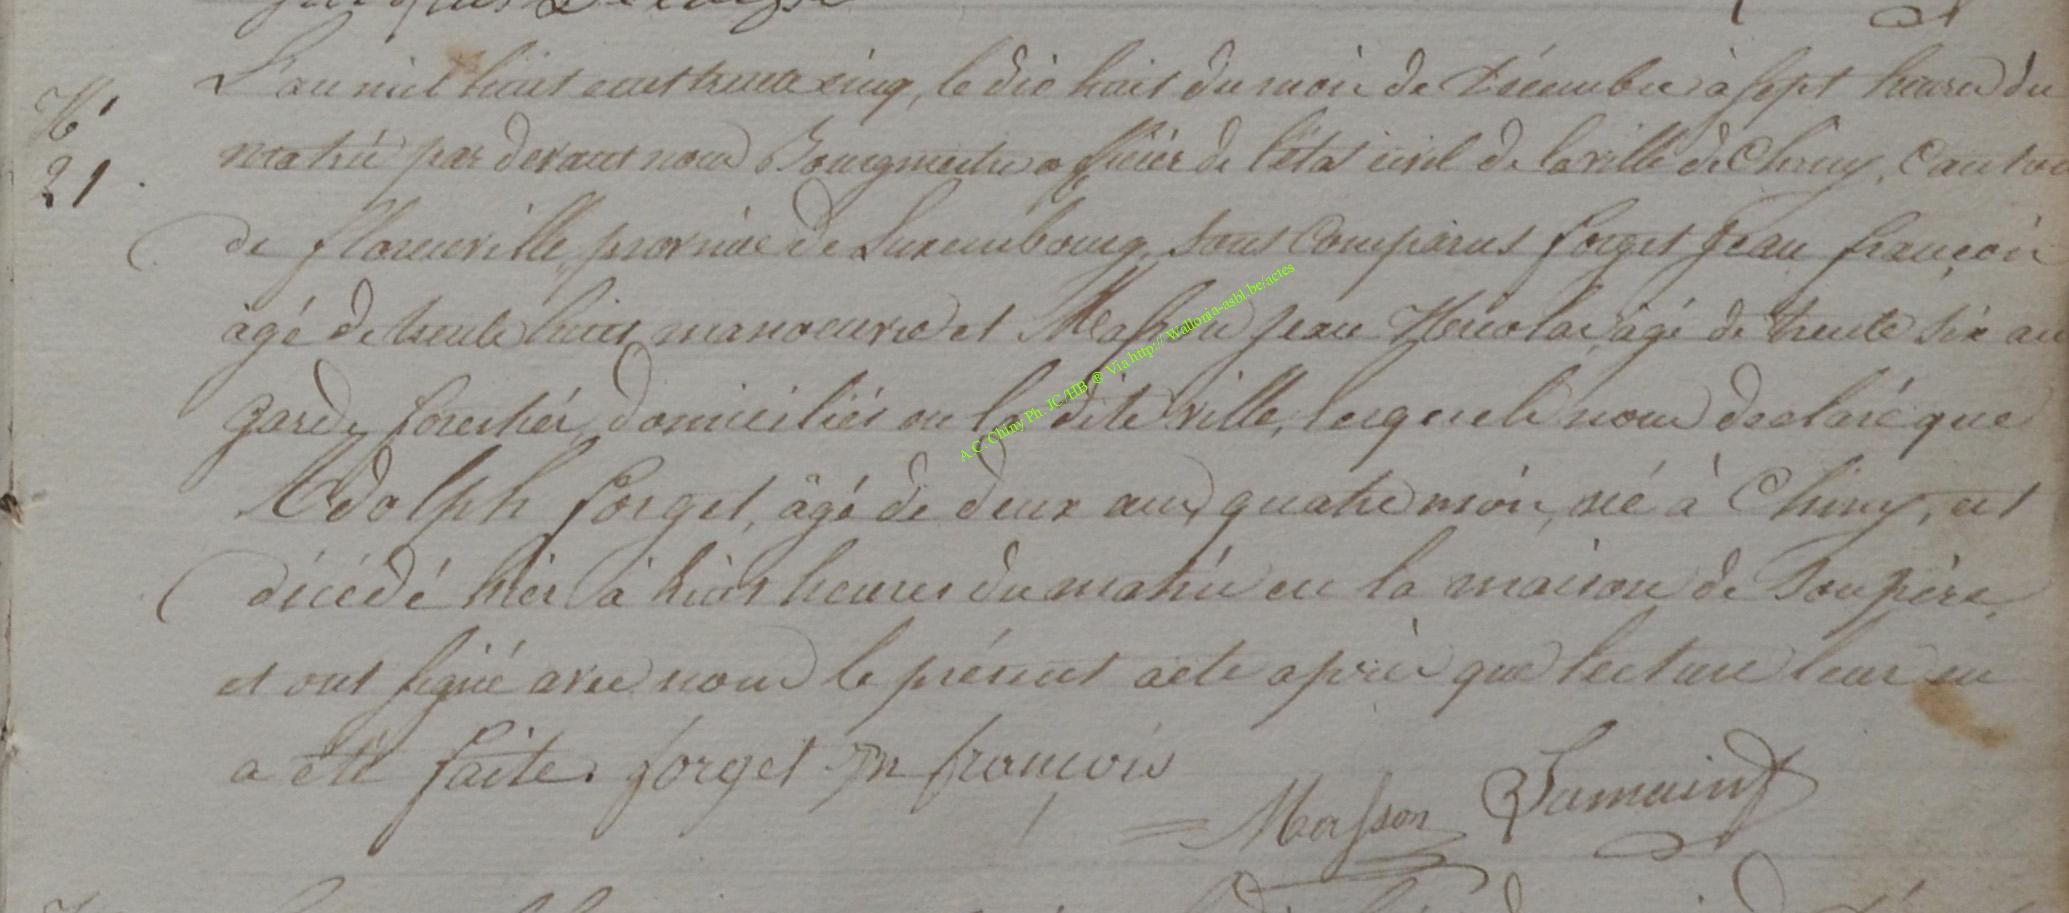 L'an mil huit cent trente cinq, le dix huit du mois de Décembre à sept heures du
N°
21.
matin par devant nous Bourgmestre officier de l'état civil de la ville de Chiny, Canton
de florenville, province de Luxembourg, sont Comparus forget Jean françois
âgé de trente huit, manoeuvre et Masson Jean Nicolas, âgé de trente six ans
garde forestiér, domiciliés en la dite ville, lesquels nous déclaré que
Adolph forget, âgé de deux ans quatre mois, né à Chiny, est
décédé hiér à huit heures du matin en la maison de Son père,
et ont signé avec nous le présent acte après que lecture leur en
a été faite. forget Jn françois
Masson
A C. Chiny Ph. JC/HB ® Via http:// Wallonia-asbl.be/actes